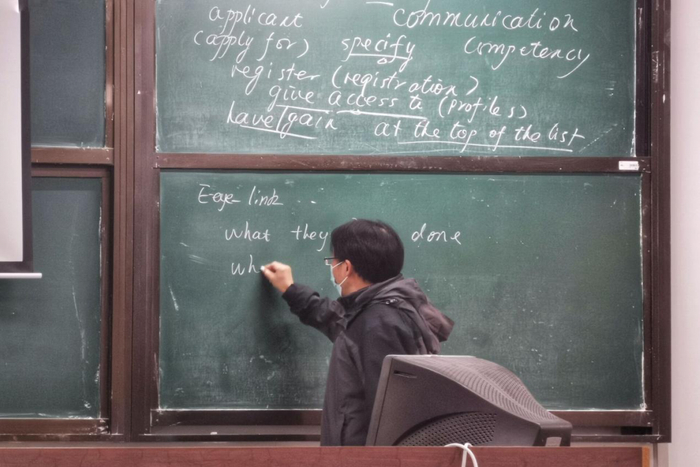 applicant communication
(apply for) specify competency
register (registration)
give access to (profiles)
have/gain at the top of the list
Eage-link
what they done
wh